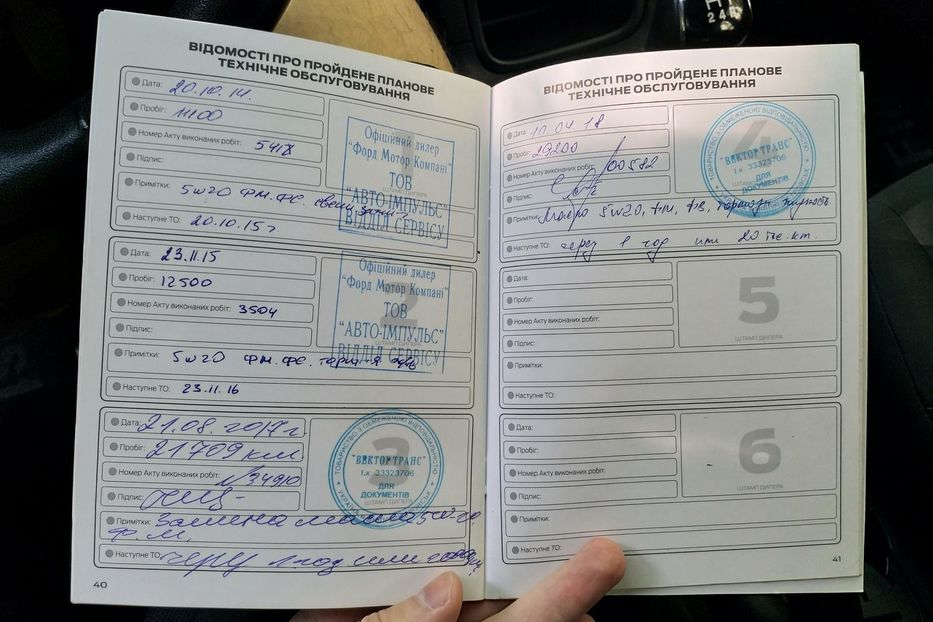 ВІДОМОСТІ ПРО ПРОЙДЕНЕ ПЛАНОВЕ
ТЕХНІЧНЕ ОБСЛУГОВУВАННЯ
Дата: 20.10.14.
Пробіг: 11100
Номер Акту виконаних робіт: 5418
Підпис:
Примітки: 5w20 ФМ.ФС. свечи
Наступне ТО: 20.10.15г
1
ШТАМП ДИЛЕРА
Офіційний дилер
"Форд Мотор Компані"
ТОВ
"АВТО-ІМПУЛЬС"
ВІДДІЛ СЕРВІСУ
Дата: 23.11.15
Пробіг: 12500
Номер Акту виконаних робіт: 3504
Підпис:
Примітки: 5w20 ФМ.ФС.
Наступне ТО: 23.11.16
2
Офіційний дилер
"Форд Мотор Компані"
ТОВ
"АВТО-ІМПУЛЬС"
ВІДДІЛ СЕРВІСУ
Дата: 21.08.2017г.
Пробіг: 21709 км
Номер Акту виконаних робіт: №34910
Підпис:
Примітки: Замена масла 5w20,
Ф.М.
Наступне ТО: через 1 год или
3
ТОВАРИСТВО З ОБМЕЖЕНОЮ ВІДПОВІДАЛЬНІСТЮ
"ВЕКТОР ТРАНС"
І.к. 33323706
ДЛЯ
ДОКУМЕНТІВ
40
ВІДОМОСТІ ПРО ПРОЙДЕНЕ ПЛАНОВЕ
ТЕХНІЧНЕ ОБСЛУГОВУВАННЯ
Дата: 10.04.18
Пробіг: 29200
Номер Акту виконаних робіт: 00582
Підпис:
Примітки: Масло 5w20, тормозн. жидкость
Наступне ТО: через 1 год или 20 т.км.
4
ТОВАРИСТВО З ОБМЕЖЕНОЮ ВІДПОВІДАЛЬНІСТЮ
"ВЕКТОР ТРАНС"
І.к. 33323706
ДЛЯ
ДОКУМЕНТІВ
Дата:
Пробіг:
Номер Акту виконаних робіт:
Підпис:
Примітки:
Наступне ТО:
5
ШТАМП ДИЛЕРА
Дата:
Пробіг:
Номер Акту виконаних робіт:
Підпис:
Примітки:
Наступне ТО:
6
ШТАМП ДИЛЕРА
41